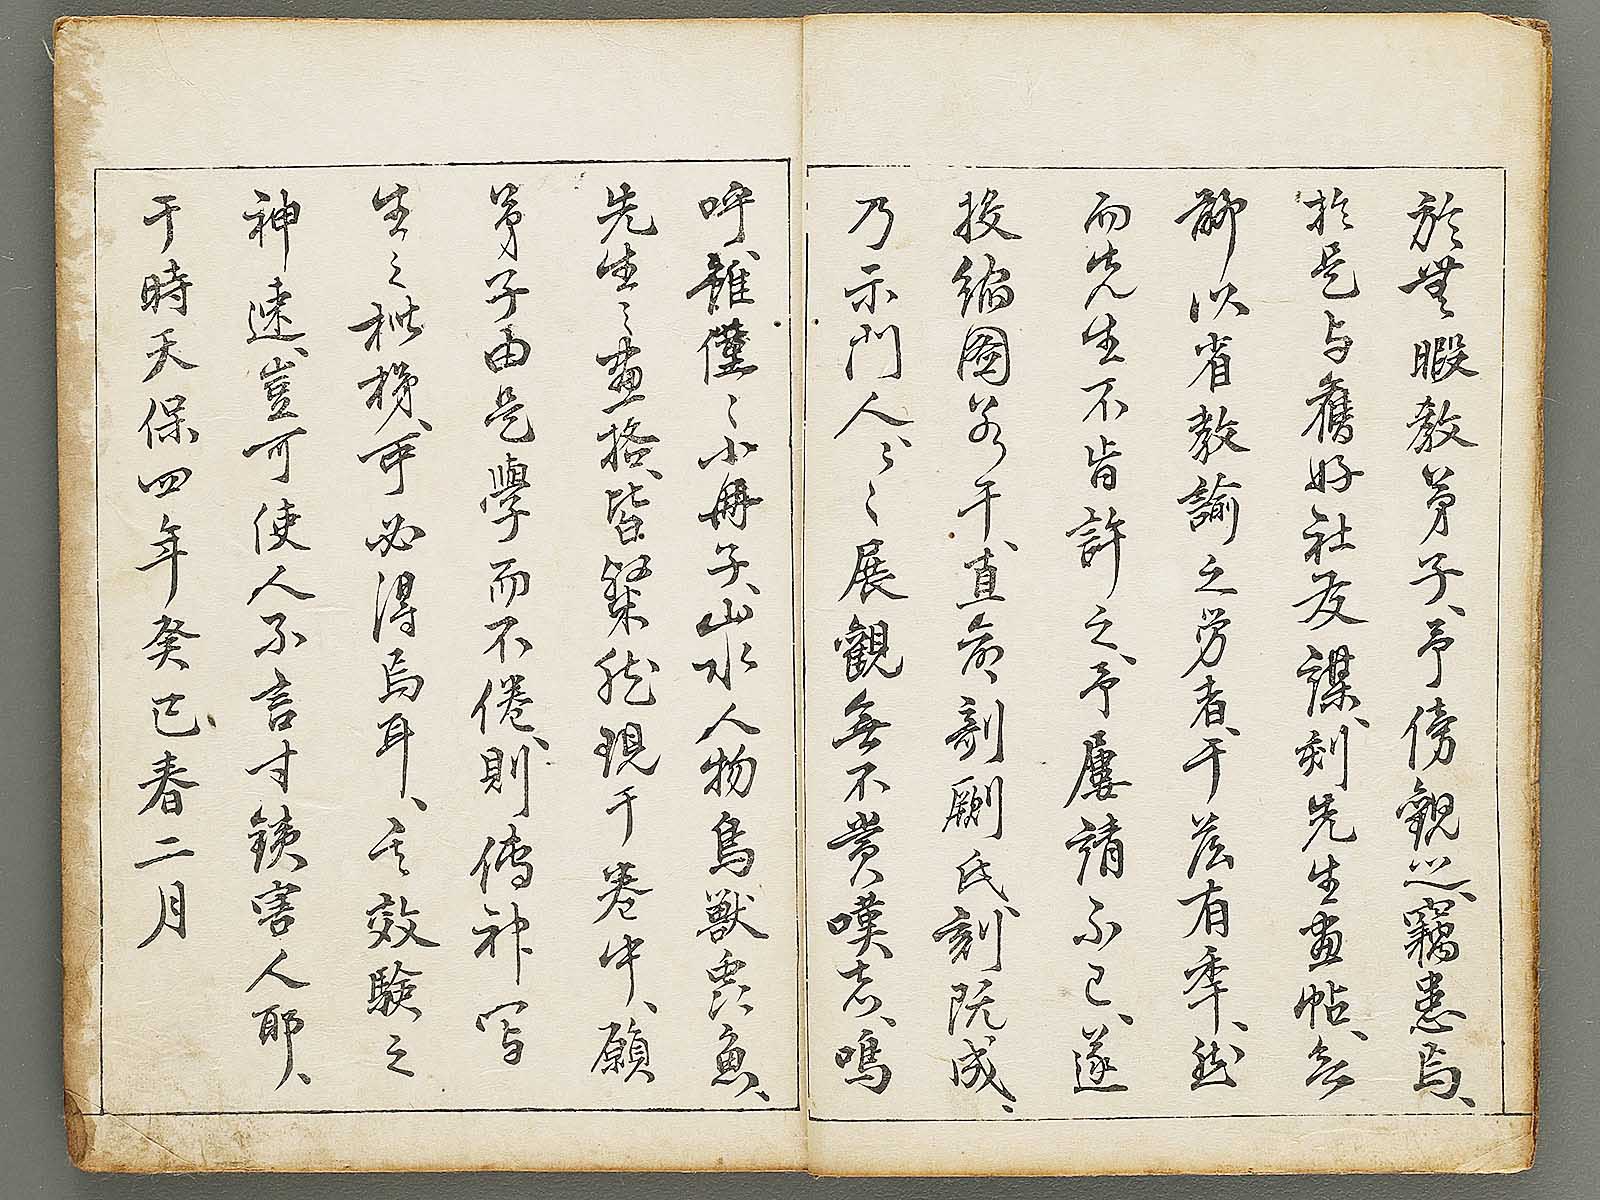 於無暇教弟子、予傍観之、竊患焉、
於是与舊好社友謀、刻先生畫帖、
聊以省教諭之労者、于茲有季、然
而先生不肯許之、予屢請不已、遂
投縮圖若干、直命剞劂氏刻既成、
乃示門人、〻〻展觀無不賞嘆者、嗚
呼、雖僅〻小冊子、山水人物鳥獣虫魚、
先生之畫格、皆粲然現于卷中、願
弟子由是學而不倦、則傳神写
生之梯、可必得焉耳、其效験之
神速、豈可使人不言寸鐵害人耶、
于時天保四年癸巳春二月